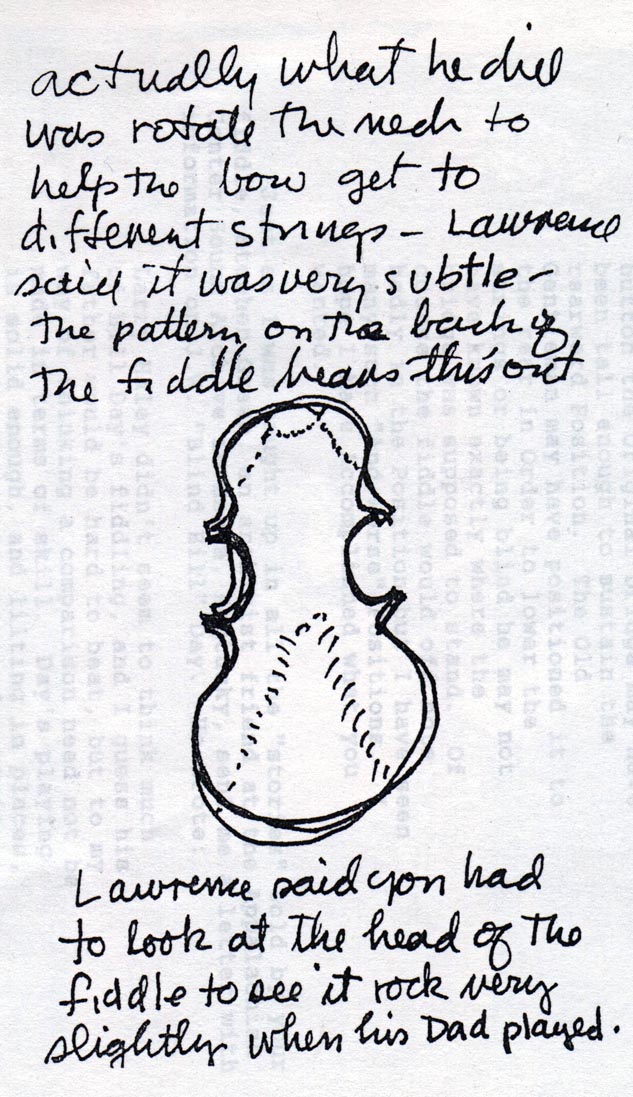 actually what he did
was rotate the neck to
help the bow get to
different strings – Lawrence
said it was very subtle –
the pattern on the back of
the fiddle bears this out
Lawrence said you had
to look at the head of the
fiddle to see it rock very
slightly when his Dad played.